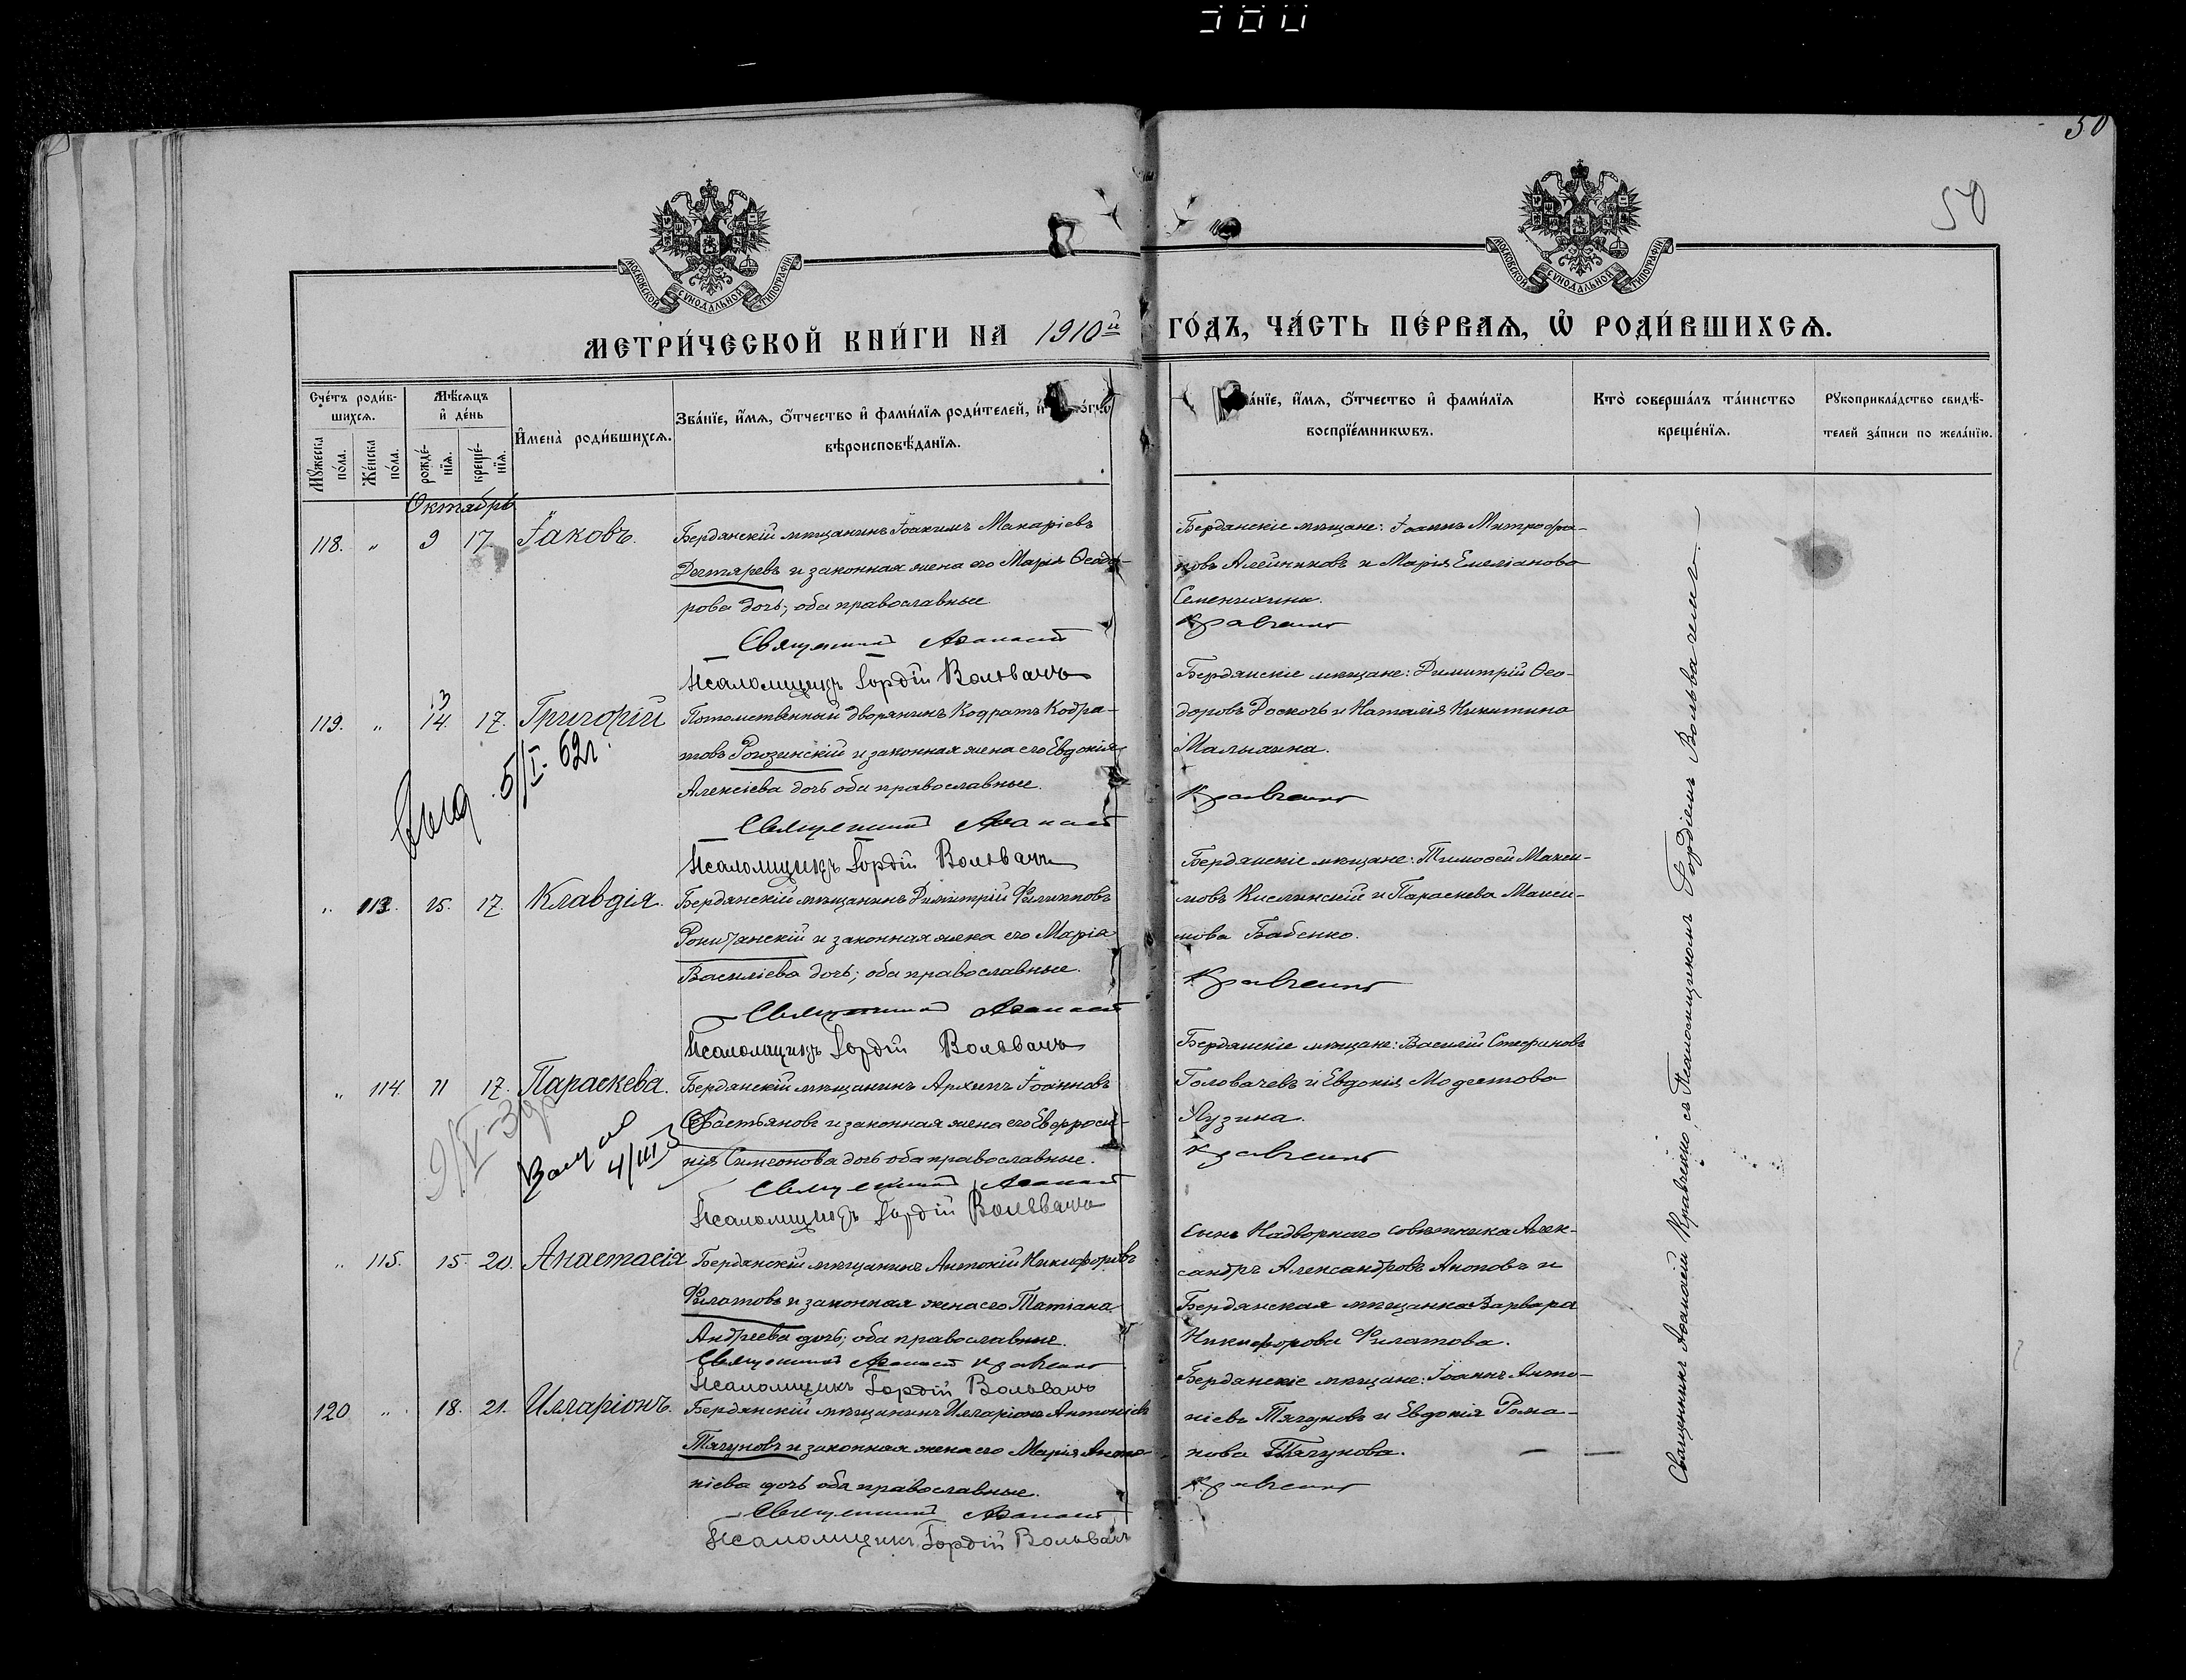 50
50
МОСКОВСКОЙ СѴНОДАЛЬНОЙ ТИПОГРАФІИ
МОСКОВСКОЙ СѴНОДАЛЬНОЙ ТИПОГРАФІИ
МЕТРИ́ЧЕСКОЙ КНИ́ГИ НА 1910й ГО́ДЪ, ЧА́СТЬ ПЕ́РВАѦ, Ѡ҆ РОДИ́ВШИХСѦ.
Сче́тъ роди́в-
шихсѧ.
Мꙋ́жеска по́ла.
Же́нска по́ла.
Мѣ́сѧцъ
и҆ де́нь
рожде́-
нїѧ.
креще́-
нїѧ.
И҆мена̀ роди́вшихсѧ.
Зва́нїе, и҆́мѧ, ѻ҆́тчество и҆ фами́лїѧ роди́телей, и҆
вѣроисповѣ́данїѧ.
и҆́мѧ, ѻ҆́тчество и҆ фами́лїѧ
воспрїе́мникѡвъ.
Кто̀ соверша́лъ та́инство
креще́нїѧ.
Рꙋкоприкла́дство свидѣ́-
телей за́писи по жела́нїю.
Октябрь
118. „ 9 17. Іаковъ.
Бердянскій мѣщанинъ Іоакимъ Макаріевъ
Дегтяревъ и законная жена его Марія Ѳеодо-
рова дочь; оба православные
Священникъ Аѳанасій
Псаломщикъ Гордій Вольвачъ
Бердянскіе мѣщане: Іоаннъ Митрофа-
новъ Алейниковъ и Марія Емеліанова
Семенихина.
Кравченко
119. „ 13 14. 17. Григорій
5/I. 62г.
Потомственный дворянинъ Кодратъ Кодра-
товъ Рогозинскій и законная жена его Евдокія
Алексіева дочь оба православные.
Священникъ Аѳанасій
Псаломщикъ Гордій Вольвачъ
Бердянскіе мѣщане: Димитрій Ѳео-
доровъ Доскочъ и Наталія Никитина
Малыхина.
Кравченко
„ 113. 15. 17. Клавдія.
Бердянскій мѣщанинъ Димитрій Филипповъ
Рокитянскій и законная жена его Марія
Василіева дочь; оба православные.
Священникъ Аѳанасій
Псаломщикъ Гордій Вольвачъ
Бердянскіе мѣщане: Тимоѳей Макси-
мовъ Кислинскій и Параскева Макси-
мова Бабенко.
Кравченко
„ 114. 11 17. Параскева.
4/III
Бердянскій мѣщанинъ Архипъ Іоанновъ
Севастьяновъ и законная жена его Евфроси-
нія Симеонова дочь оба православные.
Священникъ Аѳанасій
Псаломщикъ Гордій Вольвачъ
Бердянскіе мѣщане: Василій Стефановъ
Головачевъ и Евдокія Модестова
Лузина.
Кравченко
„ 115. 15. 20. Анастасія
Бердянскій мѣщанинъ Антоній Никифоровъ
Филатовъ и законная жена его Татіана
Андреева дочь; оба православные.
Священникъ Аѳанасій Кравченко
Псаломщикъ Гордій Вольвачъ
Сынъ Надворнаго совѣтника Алек-
сандръ Александровъ Акоповъ и
Бердянская мѣщанка Варвара
Никифорова Филатова.
120 „ 18. 21. Илларіонъ.
Бердянскій мѣщанинъ Илларіонъ Антоніевъ
Тягуновъ и законная жена его Марія Анто-
ніева дочь оба православные.
Священникъ Аѳанасій
Псаломщикъ Гордій Вольвачъ
Бердянскіе мѣщане: Іоаннъ Анто-
ніевъ Тягуновъ и Евдокія Рома-
нова Тягунова.
Кравченко
Священникъ Аѳанасій Кравченко съ Псаломщикомъ Гордіемъ Вольвачемъ.